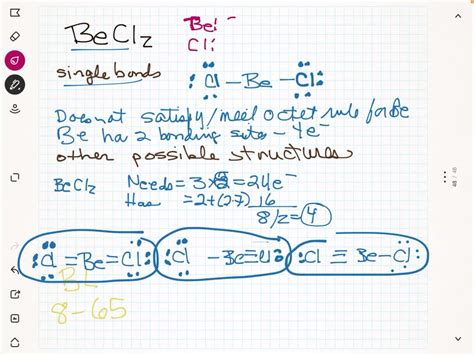 BeCl2
Be: -
Cl:
single bonds
:Cl - Be - Cl:
Does not satisfy/meet octet rule for Be
Be has 2 bonding sites - 4e-
other possible structures
BeCl2 Needs = 3x8 = 24e-
Has = 2+(2·7) 16
8/2 = 4
:Cl = Be = Cl: :Cl - Be ≡ Cl: :Cl ≡ Be - Cl:
8-65